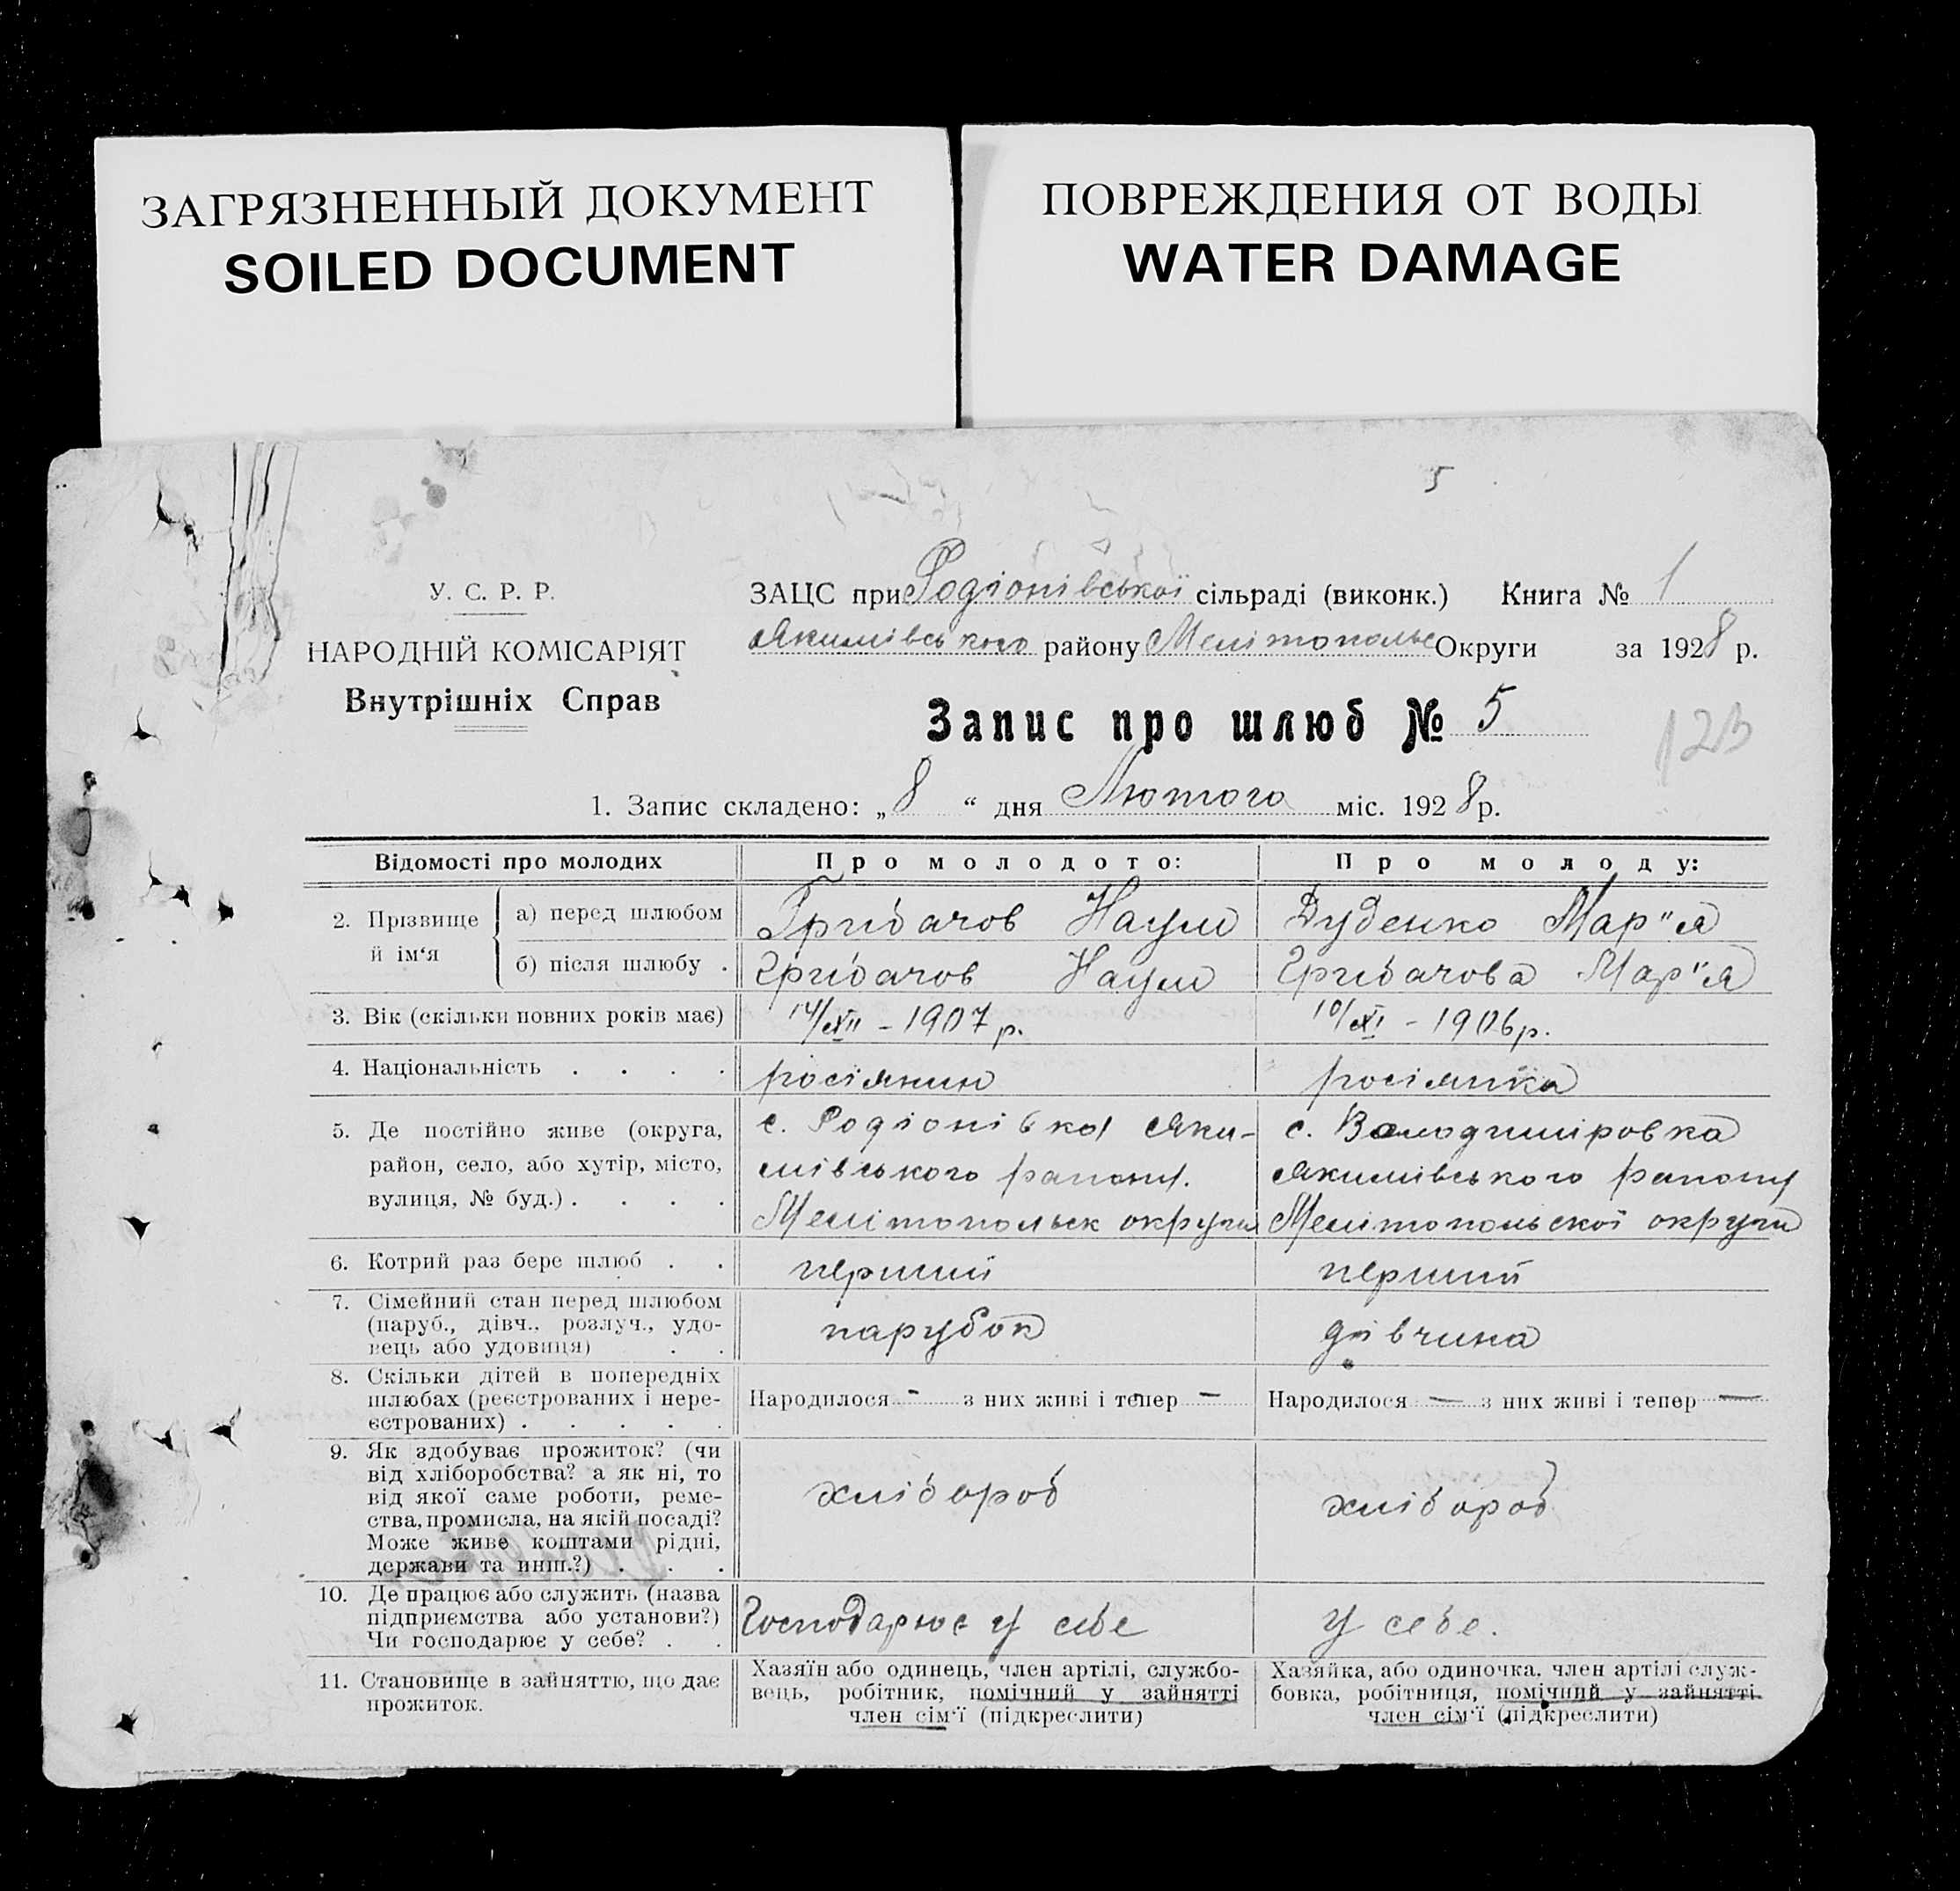 ЗАГРЯЗНЕННЫЙ ДОКУМЕНТ
SOILED DOCUMENT
ПОВРЕЖДЕНИЯ ОТ ВОДЫ
WATER DAMAGE
5
У. С. Р. Р.
НАРОДНІЙ КОМІСАРІЯТ
Внутрішніх Справ
ЗАЦС при Родіонівської сільраді (виконк.) Книга № 1
Якимівського району Мелітопольс Округи за 1928 р.
Запис про шлюб № 5
1. Запис складено: „8“ дня Лютого міс. 1928 р.
Відомості про молодих Про молодого: Про молоду:
2. Прізвище й ім‘я
а) перед шлюбом Грибачов Наум Дуденко Мар"я
б) після шлюбу . Грибачов Наум Грибачова Мар"я
3. Вік (скільки повних років має) 14/XII - 1907 р. 10/XI - 1906 р.
4. Національність . . . . росіянин росіянка
5. Де постійно живе (округа,
район, село, або хутір, місто,
вулиця, № буд.) . . . .
с. Родіонівка Яки-
мівського району.
Мелітопольск округи
с. Володимировка
Якимівського району
Мелітопольскої округи
6. Котрий раз бере шлюб . . перший перший
7. Сімейний стан перед шлюбом
(паруб., дівч., розлуч., удо-
вець або удовиця) . .
парубок дівчина
8. Скільки дітей в попередніх
шлюбах (реєстрованих і нере-
єстрованих) . . . . .
Народилося - з них живі і тепер -
Народилося — з них живі і тепер —
9. Як здобуває прожиток? (чи
від хліборобства? а як ні, то
від якої саме роботи, реме-
ства, промисла, на якій посаді?
Може живе коштами рідні,
держави та инш.?) . . .
хлібороб хлібороб
10. Де працює або служить (назва
підприємства або установи?)
Чи господарює у себе? . .
Господарює у себе у себе.
11. Становище в зайняттю, що дає
прожиток.
Хазяїн або одинець, член артілі, службо-
вець, робітник, помічний у зайнятті
член сім‘ї (підкреслити)
Хазяйка, або одиночка. член артілі служ-
бовка, робітниця, помічний у зайнятті
член сім‘ї (підкреслити)